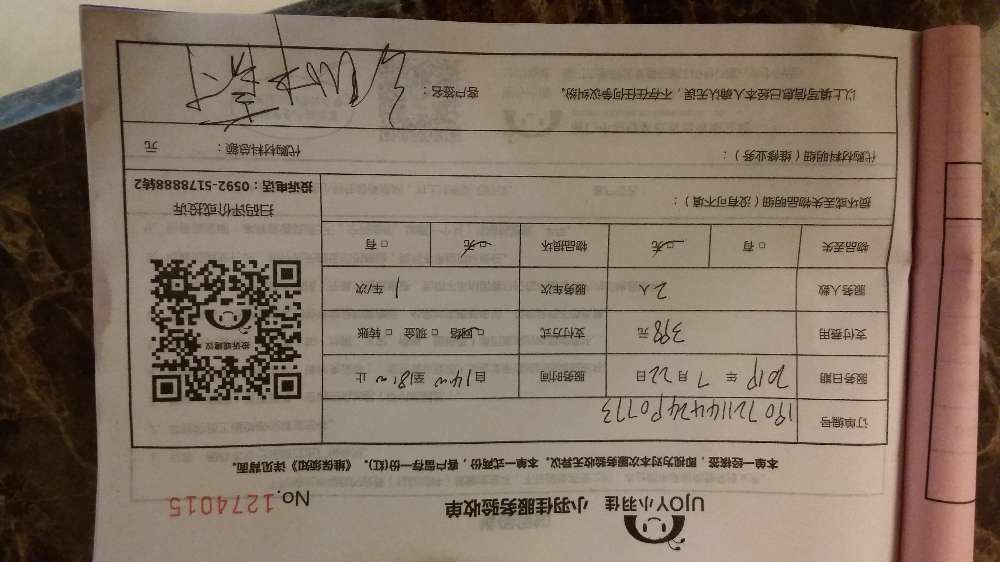 UJOY小羽佳 小羽佳服务验收单 No.1274015
本单一经核签，即视为对本次服务验收无异议。本单一式两份，客户留存一份(红)。《维保须知》详见背面。
订单编号
服务日期 2019 年 7 月 22 日 服务时间 自 14:00 至 18:00 止
支付费用 398 元 支付方式 □ 网络 □ 现金 □ 转账
服务人数 2 服务车次 1 车/次
物品丢失 □ 有 □ 无 物品损坏 □ 无 □ 有
损坏或丢失物品明细（没有可不填）：
代购材料明细（维修业务）： 代购材料总额： 元
以上填写信息已经本人确认无误，不存在任何争议纠纷。 客户签名：
投诉或建议
扫码评价或投诉
投诉电话：0592-5178888转2